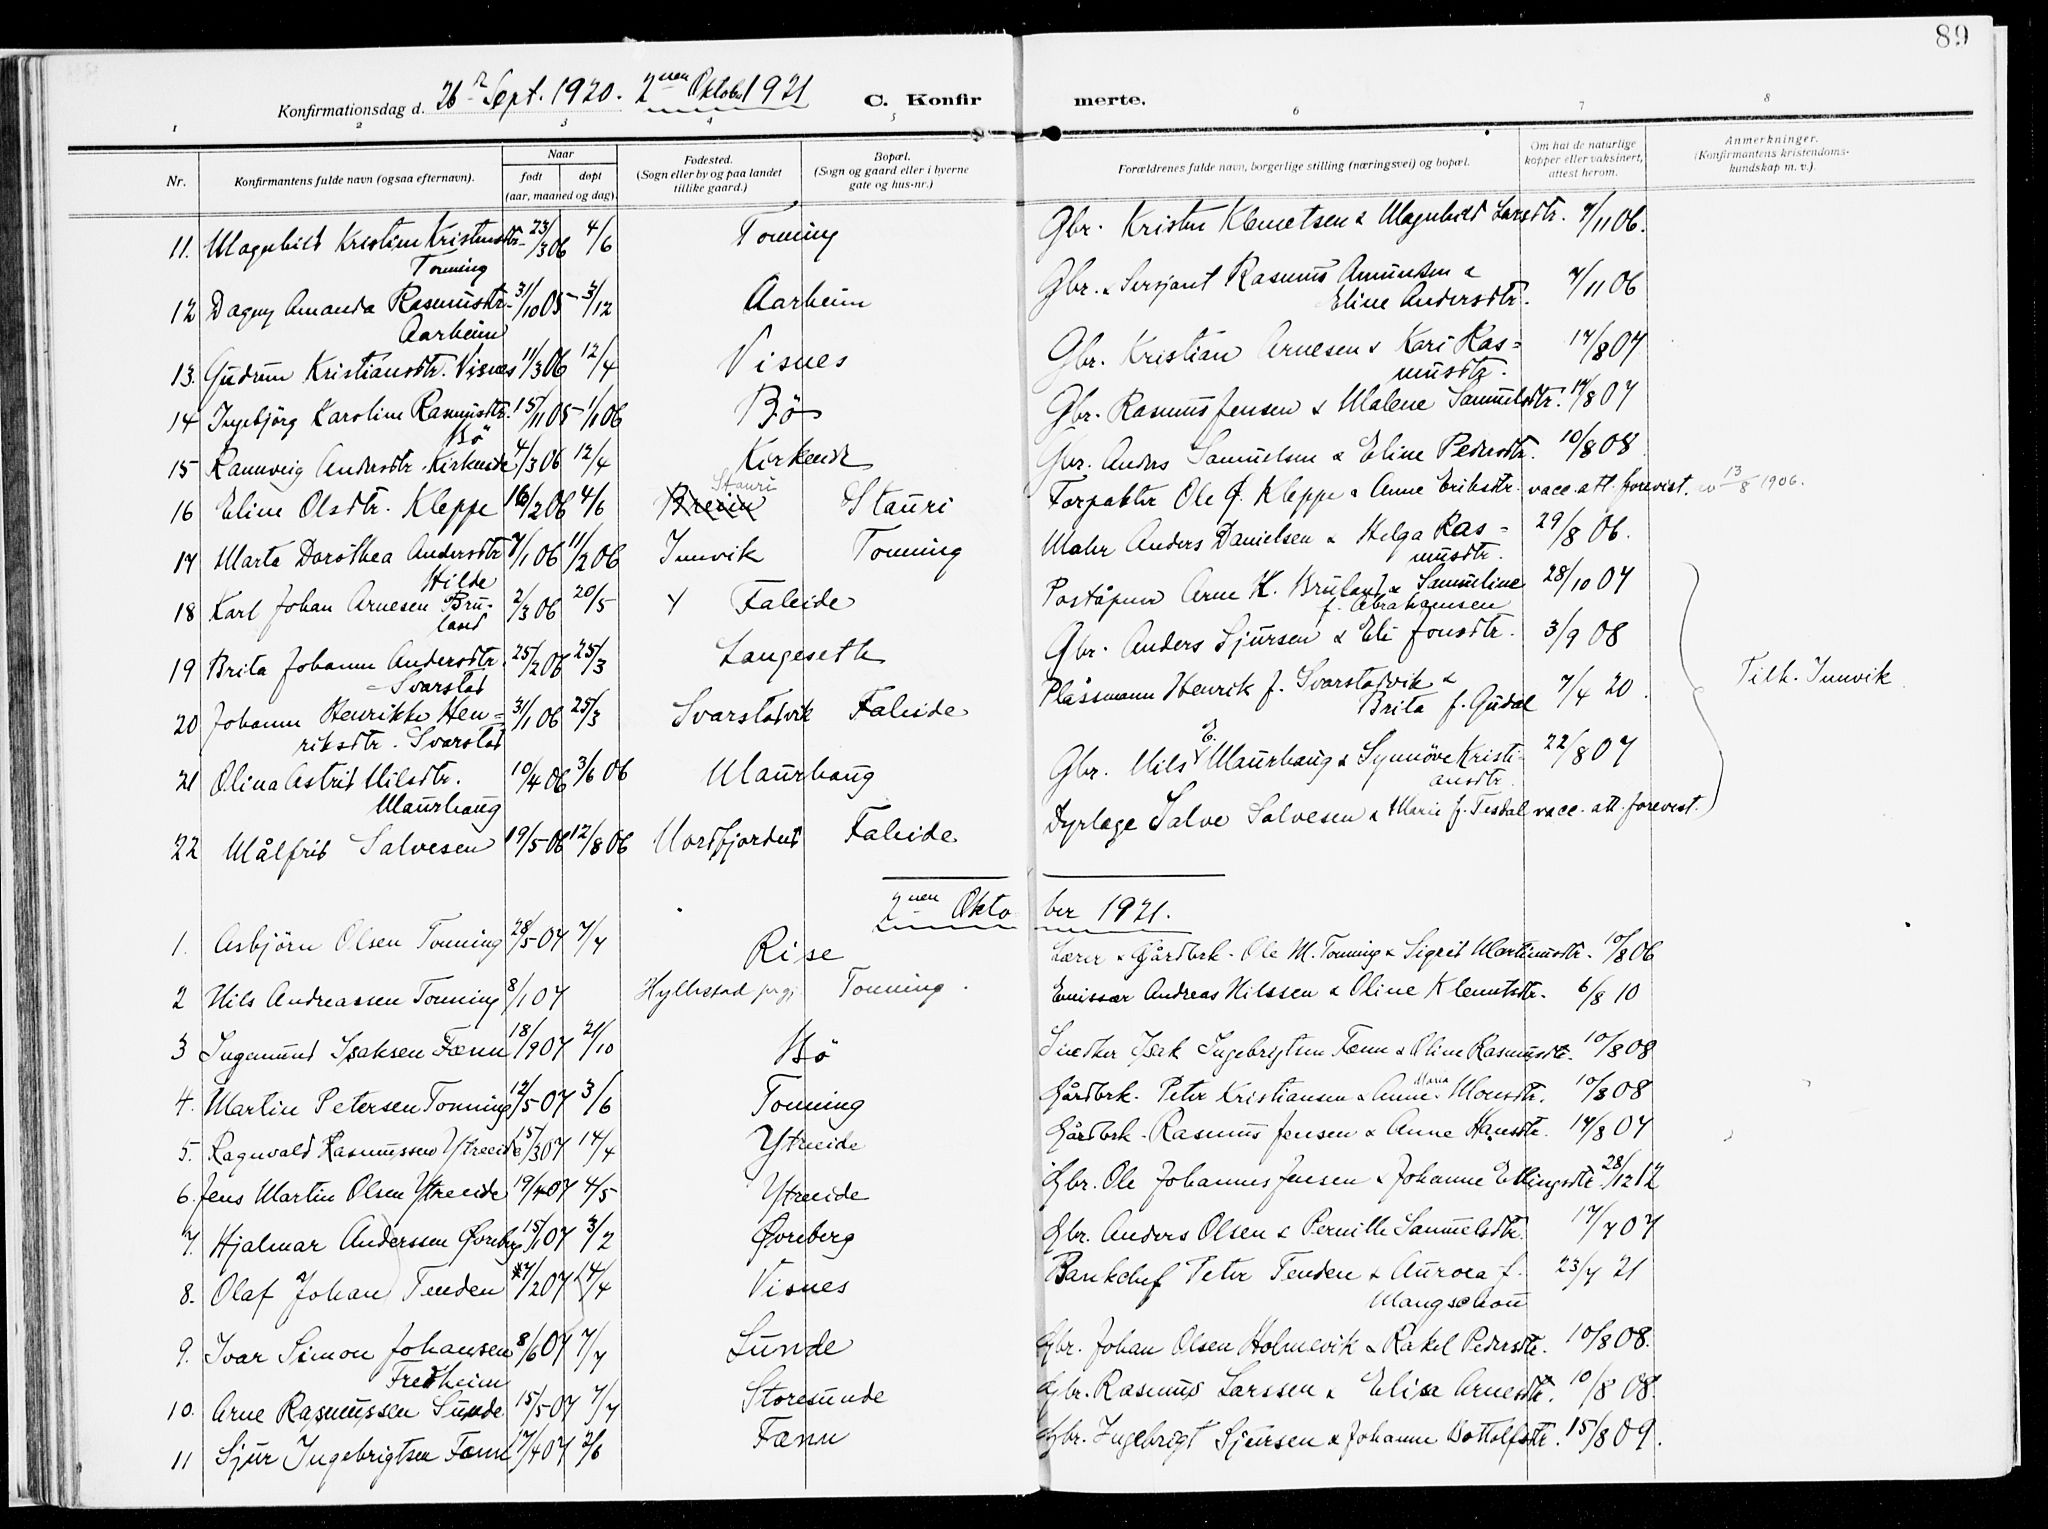 89
Konfirmationsdag d. 26 Sept. 1920. 2nen Oktober 1921 C. Konfir merte.
1 2 3 4 5 6 7 8
Nr. Konfirmantens fulde navn (ogsaa efternavn). Naar født døpt (aar, maaned og dag). Fødested. (Sogn eller by og paa landet tillike gaard.) Bopæl. (Sogn og gaard eller i byerne gate og hus-nr.) Forældrenes fulde navn, borgerlige stilling (næringsvei) og bopæl. Om hat de naturlige kopper eller vaksinert, attest herom. Anmerkninger. (Konfirmantens kristendoms-kundskap m. v.).
11. Magnhild Kristine Kristensdtr. 23/3 06 4/6 Tonning Gbr. Kristen Klemetsen & Magnhild Larsdtr. 7/11 06.
Tonning
12 Dagny Amanda Rasmusdtr. 31/10 05 - 3/12 Aarheim Gbr. & Sersjant Rasmus Amundsen & 7/11 06
Aarheim Eline Andersdtr.
13. Gudrun Kristiansdtr. Visnes 11/3 06 12/4 Visnes Gbr. Kristian Arnesen & Kari Ras= 17/8 07
musdtr.
14 Ingebjörg Karoline Rasmusdtr. 15/11 05 - 1/1 06 Bö Gbr. Rasmus Jensen & Malene Samuelsdtr. 17/8 07
Bö
15 Rannveig Andersdtr. Kirkeide 4/3 06 12/4 Kirkeide Gbr. Anders Samuelsen & Eline Pedersdtr. 10/8 08.
16 Eline Olsdtr. Kleppe 16/2 06 4/6 Breim Stauri Stauri Forpakter Ole J. Kleppe & Anne Eriksdtr. vacc. att. forevist. 13/8 1906.
17 Marta Dorothea Andersdtr 7/1 06 11/2 06 Innvik Tonning Maler Anders Danielsen & Helga Ras= 29/8 06.
Hilde musdtr.
18 Karl Johan Arnesen Bru- 2/3 06 20/5 Faleide Poståpner Arne K. Bruland & Samueline 28/10 07
land f. Abrahamsen
19 Brita Johanne Andersdtr. 25/2 06 25/3 Langeseth Gbr. Anders Sjursen & Eli Jonsdtr. 3/9 08
Svarstad Tilh. Innvik
20 Johanne Henrikke Hen= 31/1 06 25/3 Svarstadvik Faleide Plassmann Henrik J. Svarstadvik & 7/4 20.
riksdtr. Svarstad Brita f. Gudal
21 Olina Astrid Nilsdtr. 10/4 06 3/6 06 Maurhaug Gbr. Nils E. Maurhaug & Synnöve Kristi- 22/8 07
Maurhaug ansdtr.
22 Målfrid Salvesen 19/5 06 12/8 06 Nordfjordeid Faleide Dyrlæge Salve Salvesen & Marie f. Tesdal vacc. att. forevist.
2nen Okto ber 1921.
1. Asbjörn Olsen Tonning 28/5 07 7/7 Rise Lærer & Gårdbrk. Ole M. Tonning & Sigrid Martinusdtr. 10/8 06
2 Nils Andreassen Tonning 8/1 07 Hyllestad prgj. Tonning. Emissær Andreas Nilssen & Oline Klemetsdtr. 6/8 10
3 Ingemund Isaksen Fænn 18/9 07 21/10 Bö Snedker Isak Ingebrigtsen Fænn & Oline Rasmusdtr. 10/8 08
4. Martin Petersen Tonning 12/5 07 3/6 Tonning Gårdbrk. Peter Kristiansen & Anne Maria Monsdtr. 10/8 08
5. Ragnvald Rasmussen Ytreeide 15/3 07 14/4 Ytreeide Gårdbrk. Rasmus Jensen & Anne Hansdtr. 17/8 07
6. Jens Martin Olsen Ytreeide 19/4 07 4/5 Ytreeide Gbr. Ole Johannes Jensen & Johanne Ellingsdtr. 28/12 12
7. Hjalmar Anderssen Øvreberg 15/1 07 3/2 Øvreberg Gbr. Anders Olsen & Pernille Samuelsdtr. 17/7 07
8. Olaf Johan Tenden 7/2 07 14/4 Visnes Bankchef Peter Tenden & Aurora f. 23/7 21
Mangschou
9. Ivar Simon Johansen 8/6 07 7/7 Sunde Gbr. Johan Olsen Holmevik & Rakel Pedersdtr. 10/8 08.
Fredheim
10. Arne Rasmussen Sunde 15/5 07 7/7 Storesunde Gbr. Rasmus Larssen & Elisa Arnesdtr. 10/8 08.
11 Sjur Ingebrigtsen Fænn 17/4 07 2/6 Fænn Gbr. Ingebrigt Sjursen & Johanne Bottolfsdtr. 15/8 09.